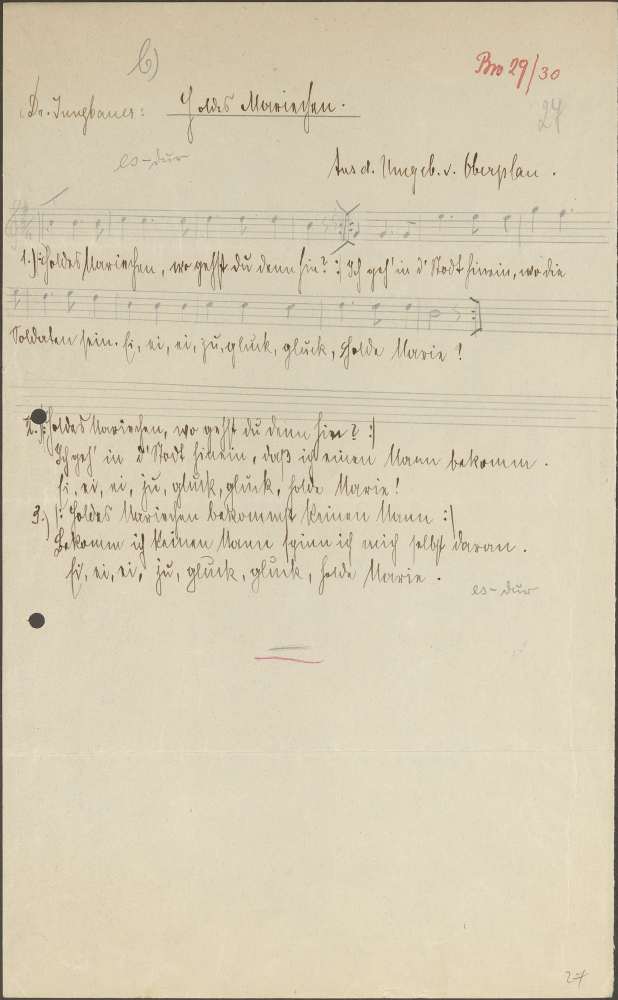 b)
Bro 29/30
Dr. Jungbauer: Holdes Mariechen.
27
es-dur
Aus d. Umgeb. v. Oberplan.
1.) |: Holdes Mariechen, wo gehst du denn hin? :| Ich geh' in d' Stadt hinein, wo die
Soldaten sein. Ei, ei, ei, zu, gluck, gluck, holde Marie!
2.) |: Holdes Mariechen, wo gehst du denn hin? :|
Ich geh' in d' Stadt hinein, daß ich einen Mann bekomm.
Ei, ei, ei, zu, gluck, gluck, holde Marie!
3.) |: Holdes Mariechen bekommst keinen Mann :|
Bekomm ich keinen Mann spinn ich mich selbst daran.
Ei, ei, ei, zu, gluck, gluck, holde Marie.
es-dur
27